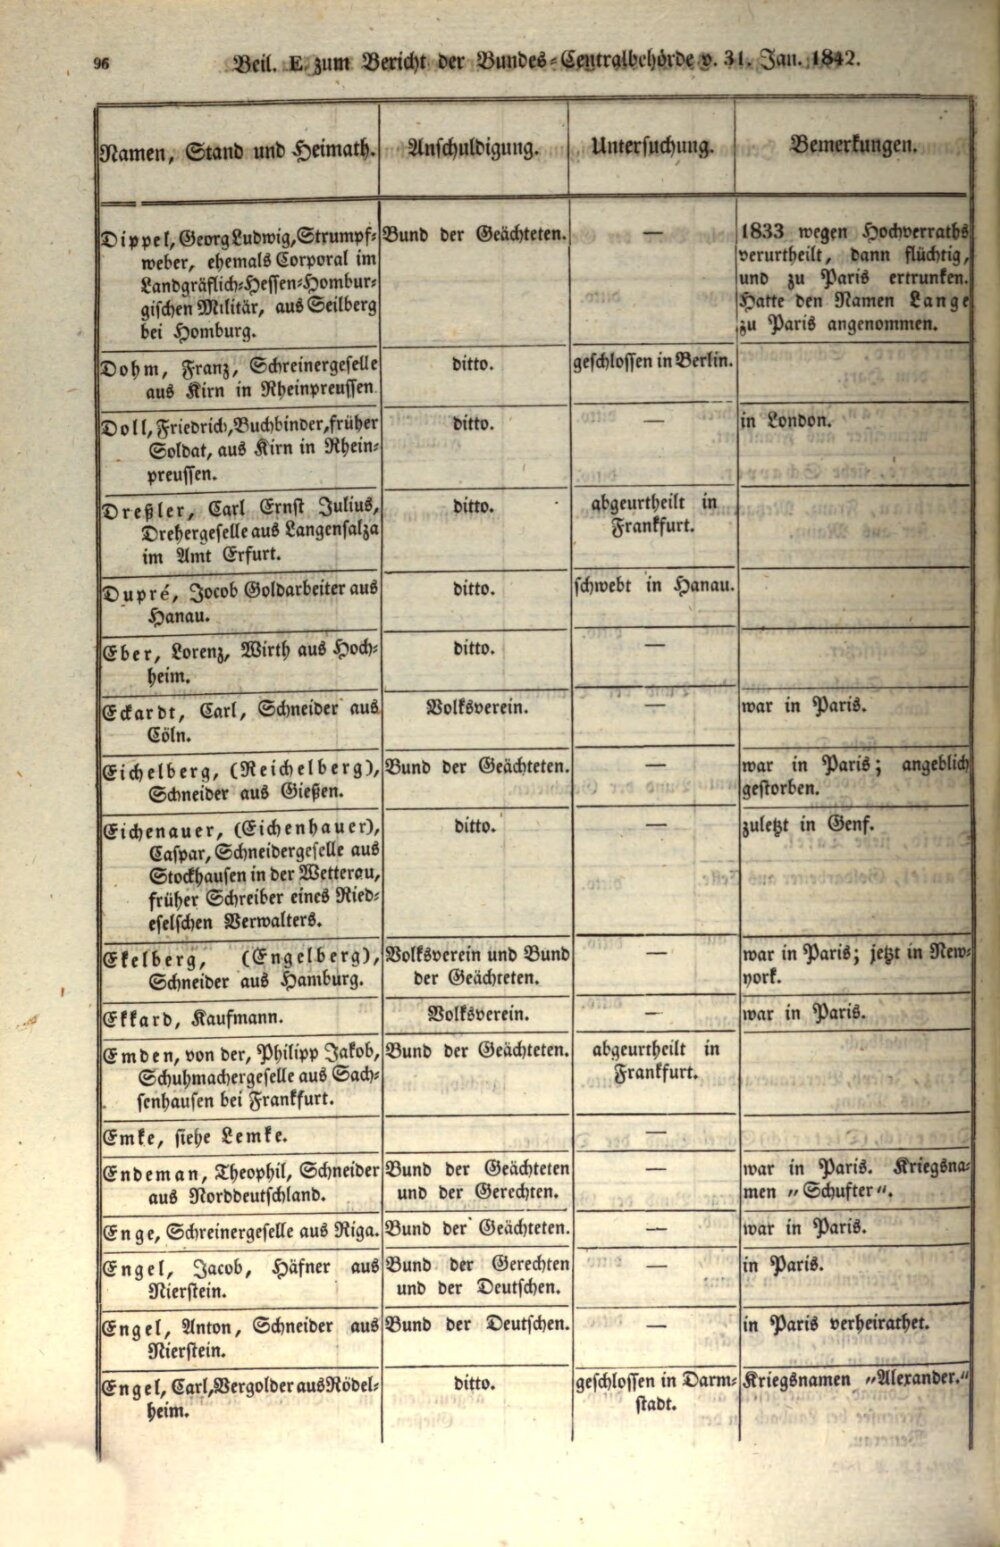 96 Beil. E. zum Bericht der Bundes-Centralbehörde v. 31. Jan. 1842.
Namen, Stand und Heimath. Anschuldigung. Untersuchung. Bemerkungen.
Dippel, Georg Ludwig, Strumpf- Bund der Geächteten. — 1833 wegen Hochverraths
weber, ehemals Corporal im verurtheilt, dann flüchtig,
Landgräflich-Hessen-Hombur- und zu Paris ertrunken.
gischen Militär, aus Seilberg Hatte den Namen Lange
bei Homburg. zu Paris angenommen.
Dohm, Franz, Schreinergeselle ditto. geschlossen in Berlin.
aus Kirn in Rheinpreussen
Doll, Friedrich, Buchbinder, früher ditto. — in London.
Soldat, aus Kirn in Rhein-
preussen.
Dreßler, Carl Ernst Julius, ditto. abgeurtheilt in
Drehergeselle aus Langensalza Frankfurt.
im Amt Erfurt.
Dupré, Jocob Goldarbeiter aus ditto. schwebt in Hanau.
Hanau.
Eber, Lorenz, Wirth aus Hoch- ditto. —
heim.
Eckardt, Carl, Schneider aus Volksverein. — war in Paris.
Cöln.
Eichelberg, (Reichelberg), Bund der Geächteten. — war in Paris; angeblich
Schneider aus Gießen. gestorben.
Eichenauer, (Eichenhauer), ditto. — zuletzt in Genf.
Caspar, Schneidergeselle aus
Stockhausen in der Wetterau,
früher Schreiber eines Ried-
eselschen Verwalters.
Ekelberg, (Engelberg), Volksverein und Bund — war in Paris; jetzt in New-
Schneider aus Hamburg. der Geächteten. york.
Ekkard, Kaufmann. Volksverein. — war in Paris.
Emden, von der, Philipp Jakob, Bund der Geächteten. abgeurtheilt in
Schuhmachergeselle aus Sach- Frankfurt.
senhausen bei Frankfurt.
Emke, siehe Lemke. —
Endeman, Theophil, Schneider Bund der Geächteten — war in Paris. Kriegsna-
aus Norddeutschland. und der Gerechten. men „Schufter".
Enge, Schreinergeselle aus Riga. Bund der Geächteten. — war in Paris.
Engel, Jacob, Häfner aus Bund der Gerechten — in Paris.
Nierstein. und der Deutschen.
Engel, Anton, Schneider aus Bund der Deutschen. — in Paris verheirathet.
Nierstein.
Engel, Carl, Vergolder aus Rödel- ditto. geschlossen in Darm- Kriegsnamen „Alexander."
heim. stadt.